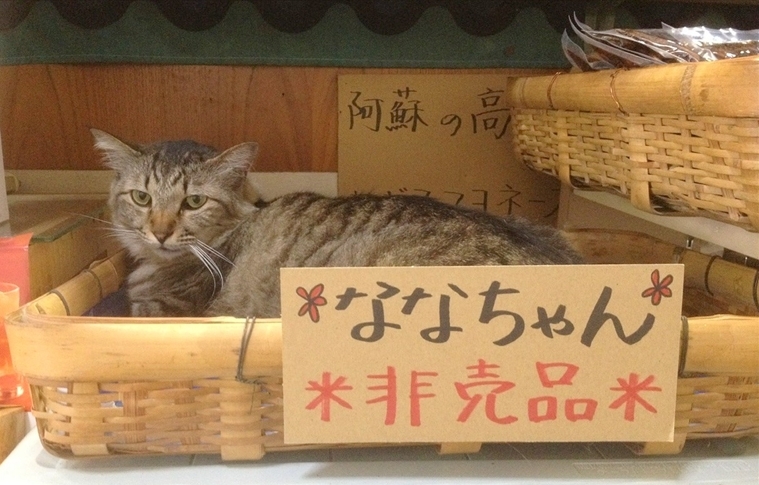 阿蘇の高
ななちゃん
*非売品*